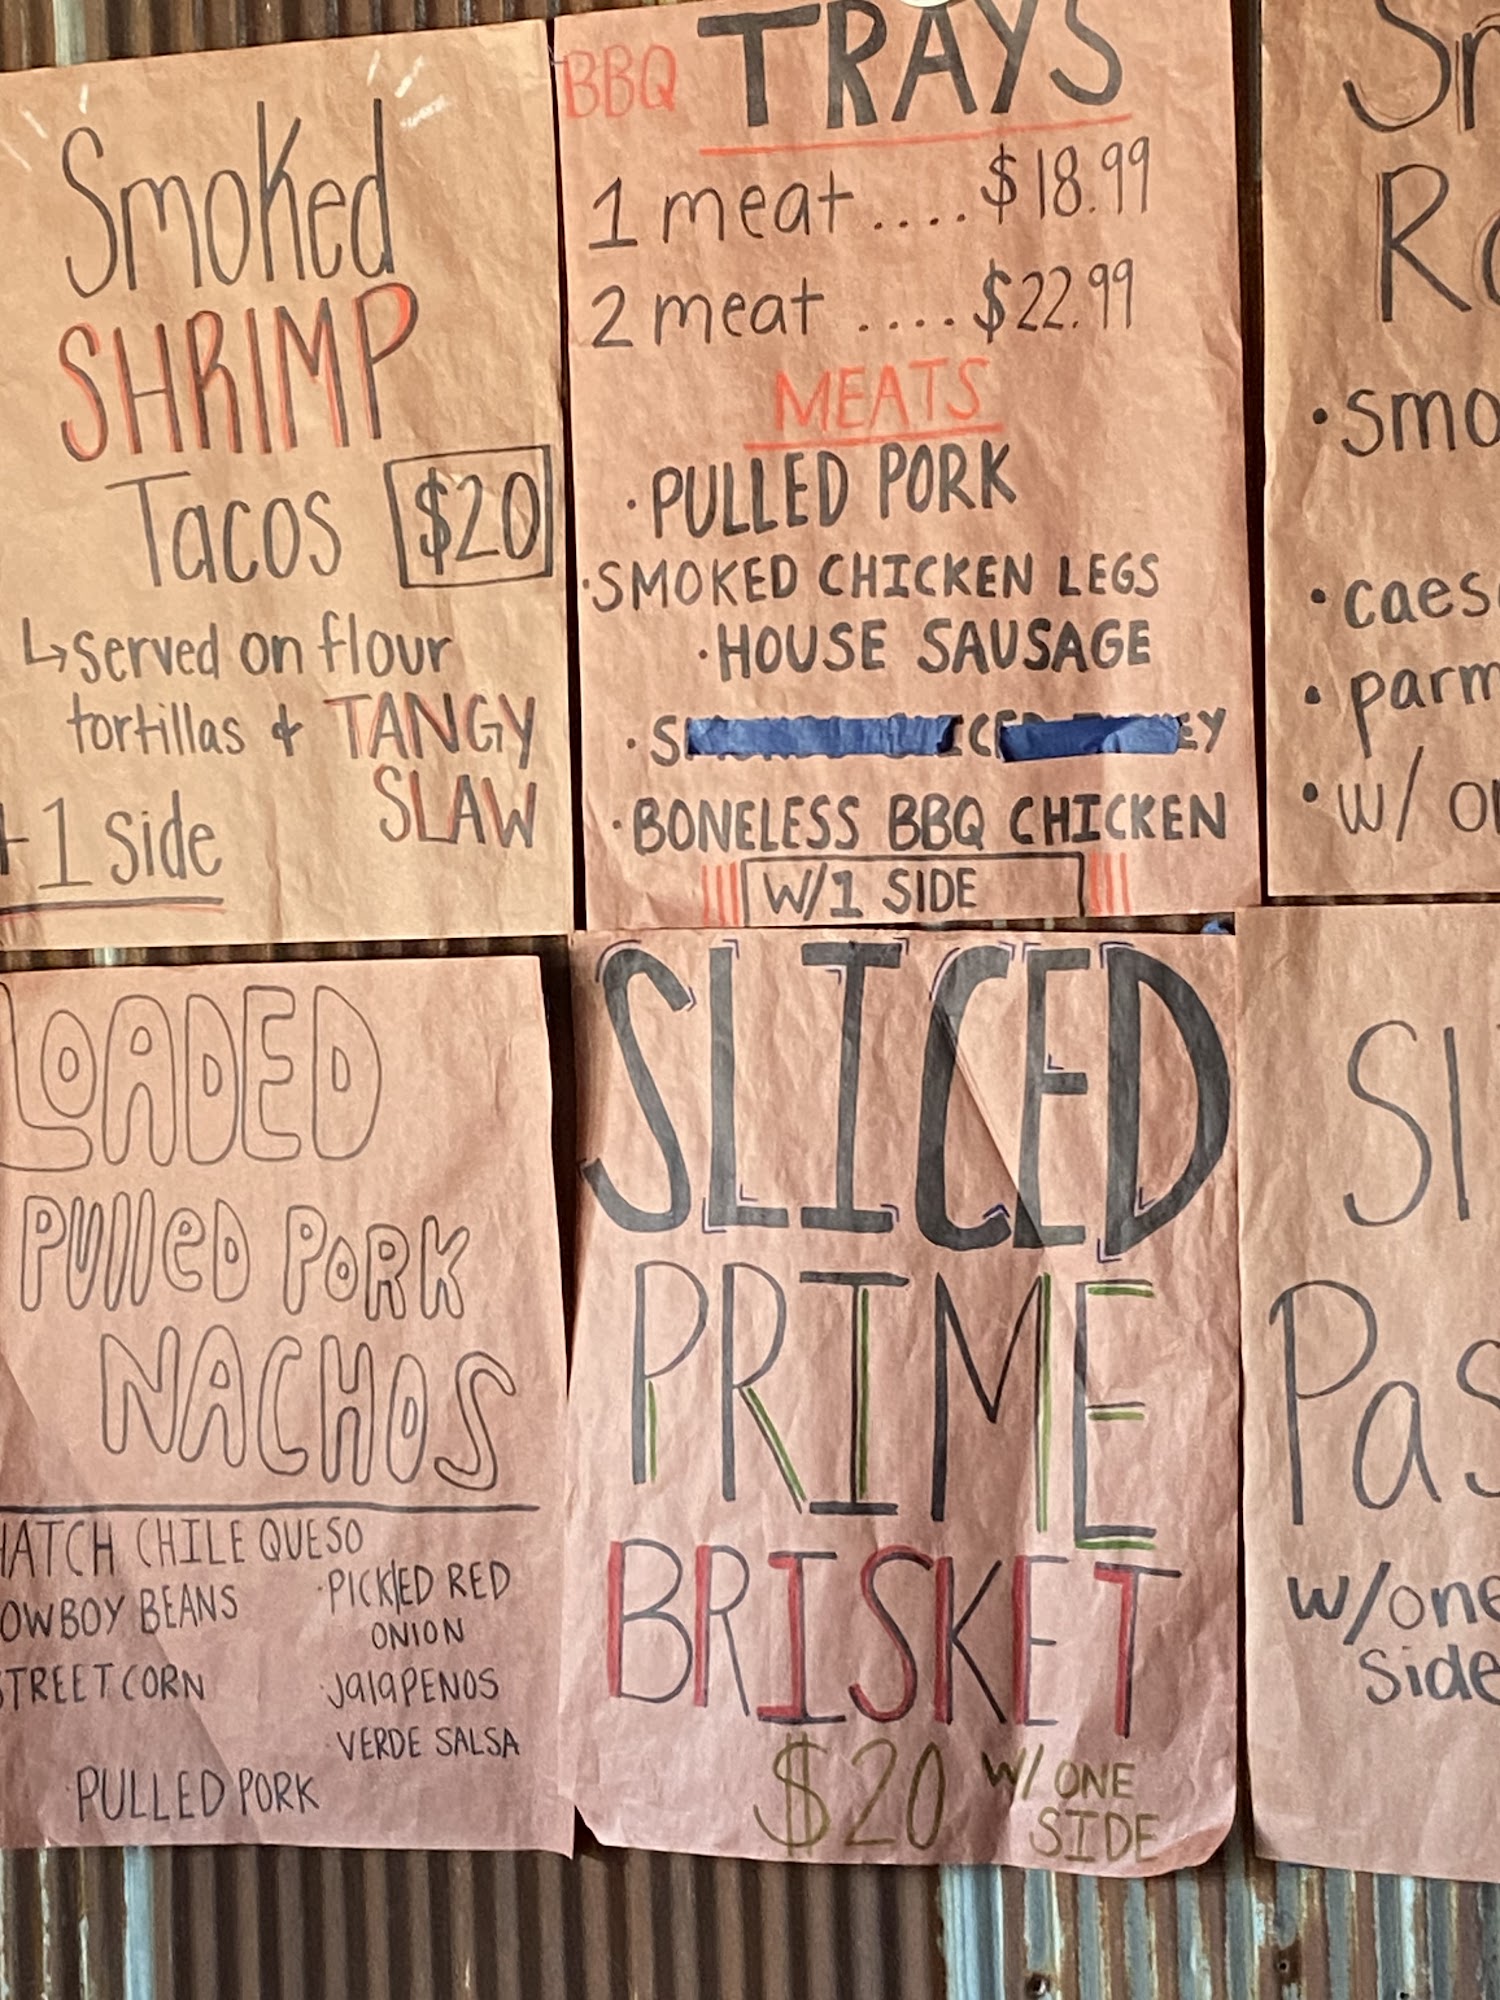 Smoked
SHRIMP
Tacos $20
↳served on flour
tortillas & TANGY
SLAW
+1 side
BBQ TRAYS
1 meat....$18.99
2 meat ....$22.99
MEATS
·PULLED PORK
·SMOKED CHICKEN LEGS
·HOUSE SAUSAGE
·BONELESS BBQ CHICKEN
W/1 SIDE
R
·smo
·caes
·parm
·w/
LOADED
PUllED PORK
NACHOS
HATCH CHILE QUESO
OWBOY BEANS
TREET CORN
·PICKlED RED
ONION
·JalaPENOS
·VERDE SALSA
·PULLED PORK
SLICED
PRIME
BRISKET
$20 W/ ONE
SIDE
Sl
Pas
w/one
side